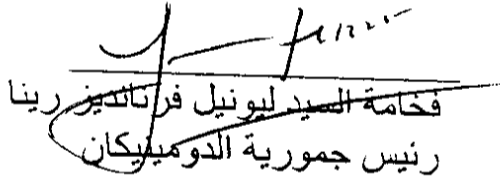 فخامة السيد ليونيل فرنانديز رينا
رئيس جمورية الدومينيكان